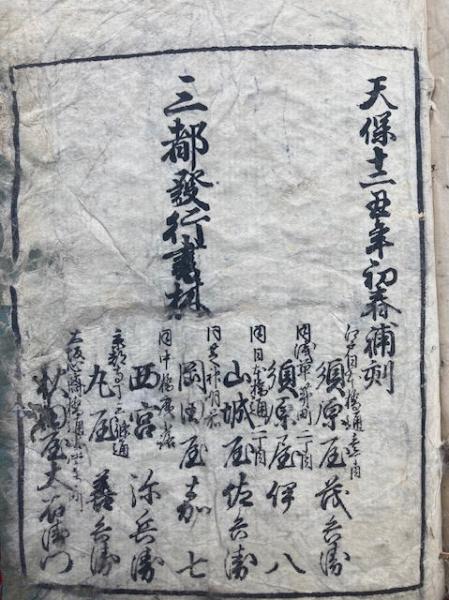 天保十二丑年初春補刻
三都發行書林
江戸日本橋通壱丁目
須原屋茂兵衛
同浅草茅町二丁目
須原屋伊八
同日本橋通二丁目
山城屋佐兵衛
同芝神明前
岡田屋嘉七
同中橋廣小路
西宮弥兵衛
京都 通
丸屋善兵衛
大坂心斎橋通安堂寺町
秋田屋太右衛門